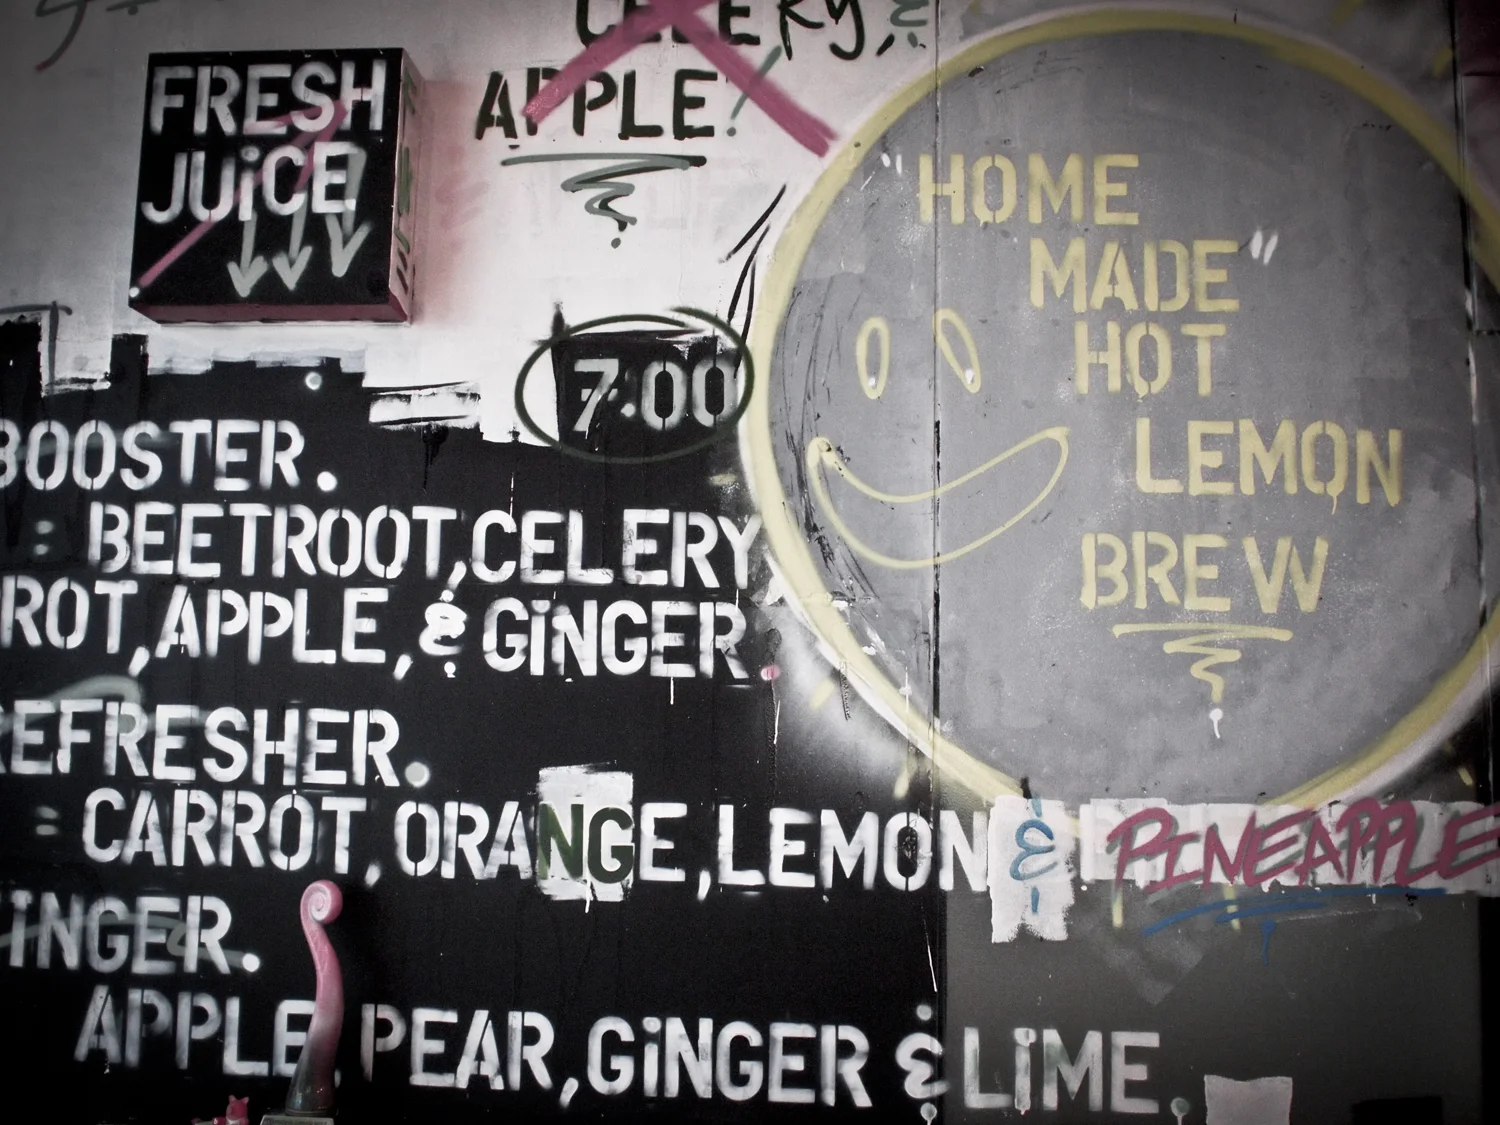 CELERY, &
APPLE!
FRESH
JUiCE
7.00
"HOME
MADE"
HOT
LEMON
BREW
BOOSTER.
= BEETROOT, CELERY,
ROT, APPLE, & GiNGER.
REFRESHER.
= CARROT, ORANGE, LEMON & PINEAPPLE
iNGER.
APPLE, PEAR, GiNGER & LiME.